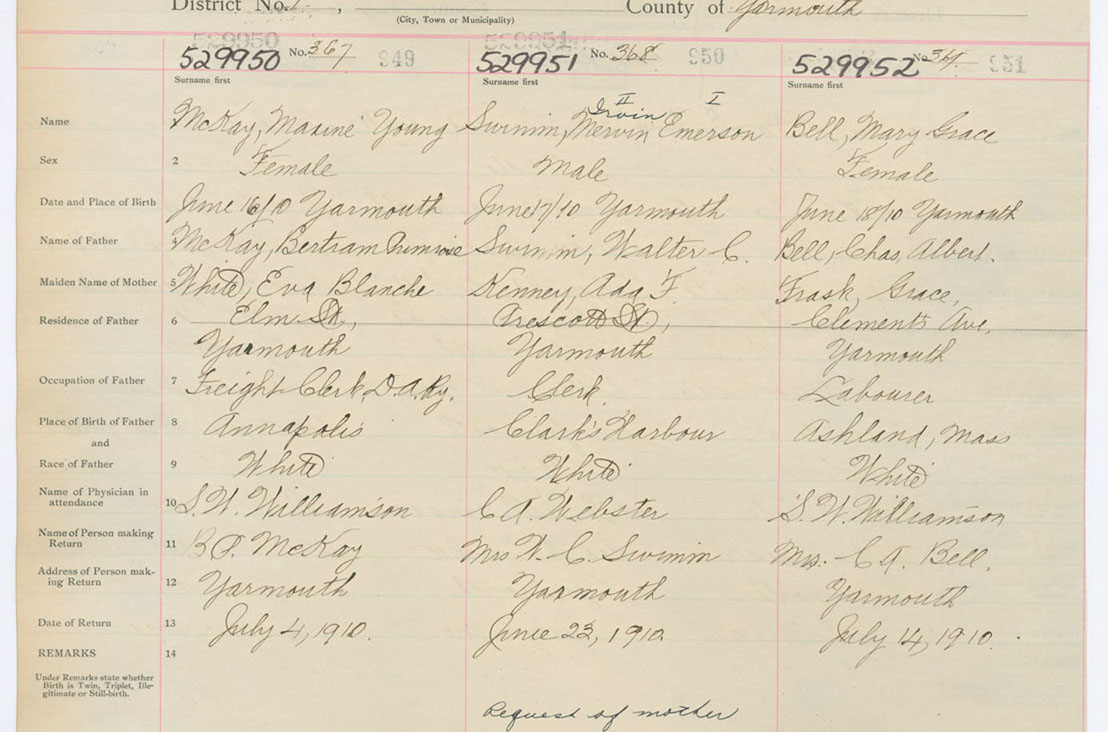 District No. 1, County of Yarmouth
(City, Town or Municipality)
529950 529951
529950 No. 367 949 529951 No. 368 950 529952 No. 369 951
Surname first Surname first Surname first
II I
Irvin
Name McKay, Maxine Young Swimm, Mervin Emerson Bell, Mary Grace
Sex 2 Female Male Female
Date and Place of Birth June 16/10 Yarmouth June 17/10 Yarmouth June 18/10 Yarmouth
Name of Father McKay, Bertram Primrose Swimm, Walter C. Bell, Chas Albert.
Maiden Name of Mother 5 White, Eva Blanche Kenney, Ada F. Trask, Grace,
Residence of Father 6 Elm St, Prescott St, Clements Ave,
Yarmouth Yarmouth Yarmouth
Occupation of Father 7 Freight Clerk, D.A.Ry. Clerk. Labourer
Place of Birth of Father 8 Annapolis Clark's Harbour Ashland, Mass
and
Race of Father 9 White White White
Name of Physician in
attendance 10 S. W. Williamson C A. Webster S. W. Williamson
Name of Person making
Return 11 B P. McKay Mrs W. C. Swimm Mrs. C A. Bell.
Address of Person mak-
ing Return 12 Yarmouth Yarmouth Yarmouth
Date of Return 13 July 4, 1910. June 23, 1910 July 14, 1910.
REMARKS 14
Under Remarks state whether
Birth is Twin, Triplet, Ille-
gitimate or Still-birth.
Request of mother